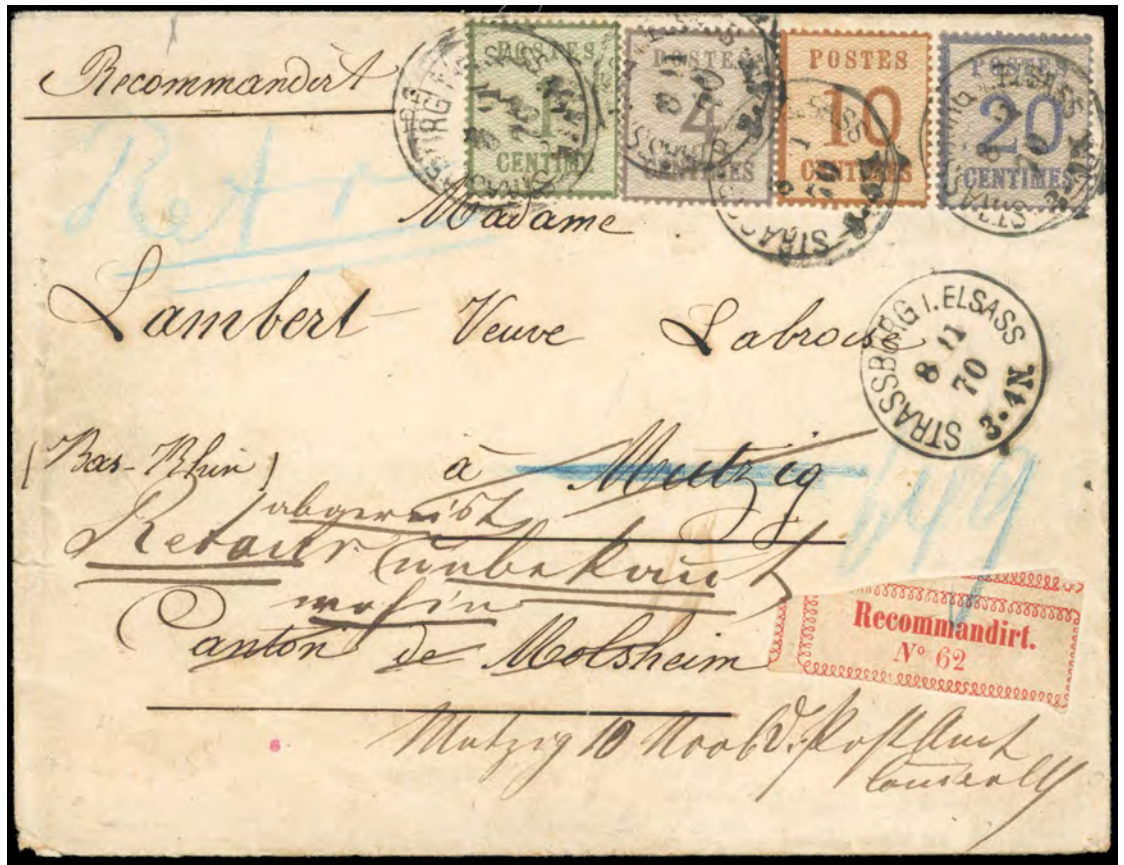 Recommandirt
POSTES
1
CENTIME
POSTES
4
CENTIMES
POSTES
10
CENTIMES
POSTES
20
CENTIMES
Retour
Madame
Lambert Veuve Labroise
STRASSBURG I. ELSASS
8 11
70
3-4N.
(Bas-Rhin) à Mutzig
abgereist
Retour unbekant
wohin
Canton de Molsheim
Recommandirt.
N° 62
Mutzig 10 Novb D. Post Amt